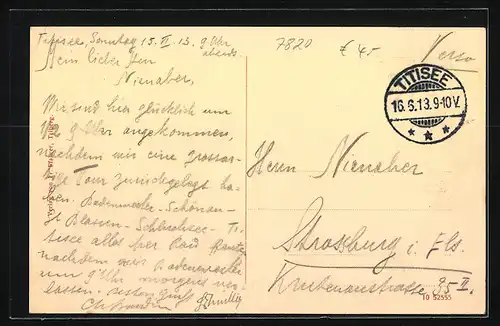 Titisee, Sonntag 15.VI.13. 9 Uhr
abends.
Mein lieber Herr
Nienaber,
Wir sind hier glücklich um
1/2 9 Uhr angekommen,
nachdem wir eine grossar-
tige Tour zurückgelegt ha-
ben. Badenweiler-Schönau-
St Blasien-Schluchsee-Ti-
tisee alles per Rad
nachdem wir Badenweiler
um 9 Uhr morgens ver-
lassen. Besten Gruß
7820
£ 4.-
Verso
TITISEE
16.6.13.9-10V.
* * *
Herrn Nienaber
Strassburg i. Els.
Knoblenaustrasse 35 II.
10 52555